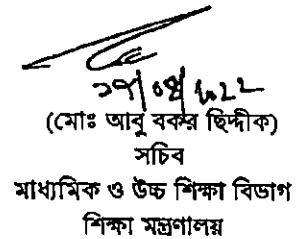 (মোঃ আবু বকর ছিদ্দীক)
সচিব
মাধ্যমিক ও উচ্চ শিক্ষা বিভাগ
শিক্ষা মন্ত্রণালয়